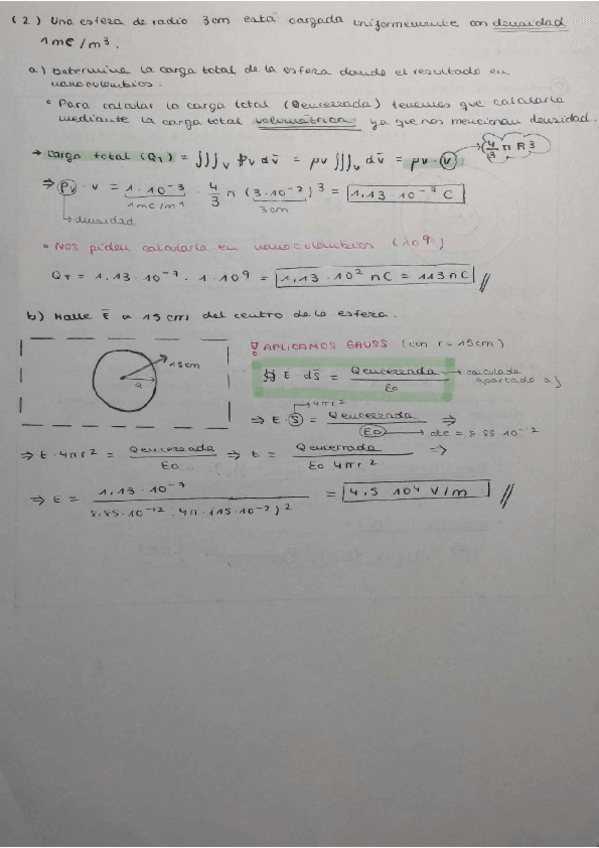 (2) Una esfera de radio 3cm está cargada uniformemente con densidad
1mC/m3.
a) Determine la carga total de la esfera dando el resultado en
nanoculombios.
• Para calcular la carga total (Qencerrada) tenemos que calcularla
mediante la carga total volumétrica ya que nos mencionan densidad.
→ carga total (QT) = ∫∫∫v ρv dv = ρv ∫∫∫v dv = ρv · (v) 4/3 π R3
⇒ (ρv) · v = 1·10-3 · 4/3 π (3·10-2)3 = 1,13·10-7 C
1mC/m3 3cm
densidad
• NOS piden calcularla en nanoculombios (109)
QT = 1,13·10-7 · 1·109 = 1,13·102 nC = 113nC //
b) Halle E a 15cm del centro de la esfera.
APLICAMOS GAUSS (con r=15cm)
15cm
a
∯ E · ds = Qencerrada / ε0 → calculada
apartado a)
4πr2
⇒ E · (S) = Qencerrada / ε0 ⇒
cte = 8.85·10-12
⇒ E · 4πr2 = Qencerrada / ε0 ⇒ E = Qencerrada / ε0 4πr2 ⇒
⇒ E = 1,13·10-7 / 8,85·10-12 · 4π · (15·10-2)2 = 4,5 104 V/m //